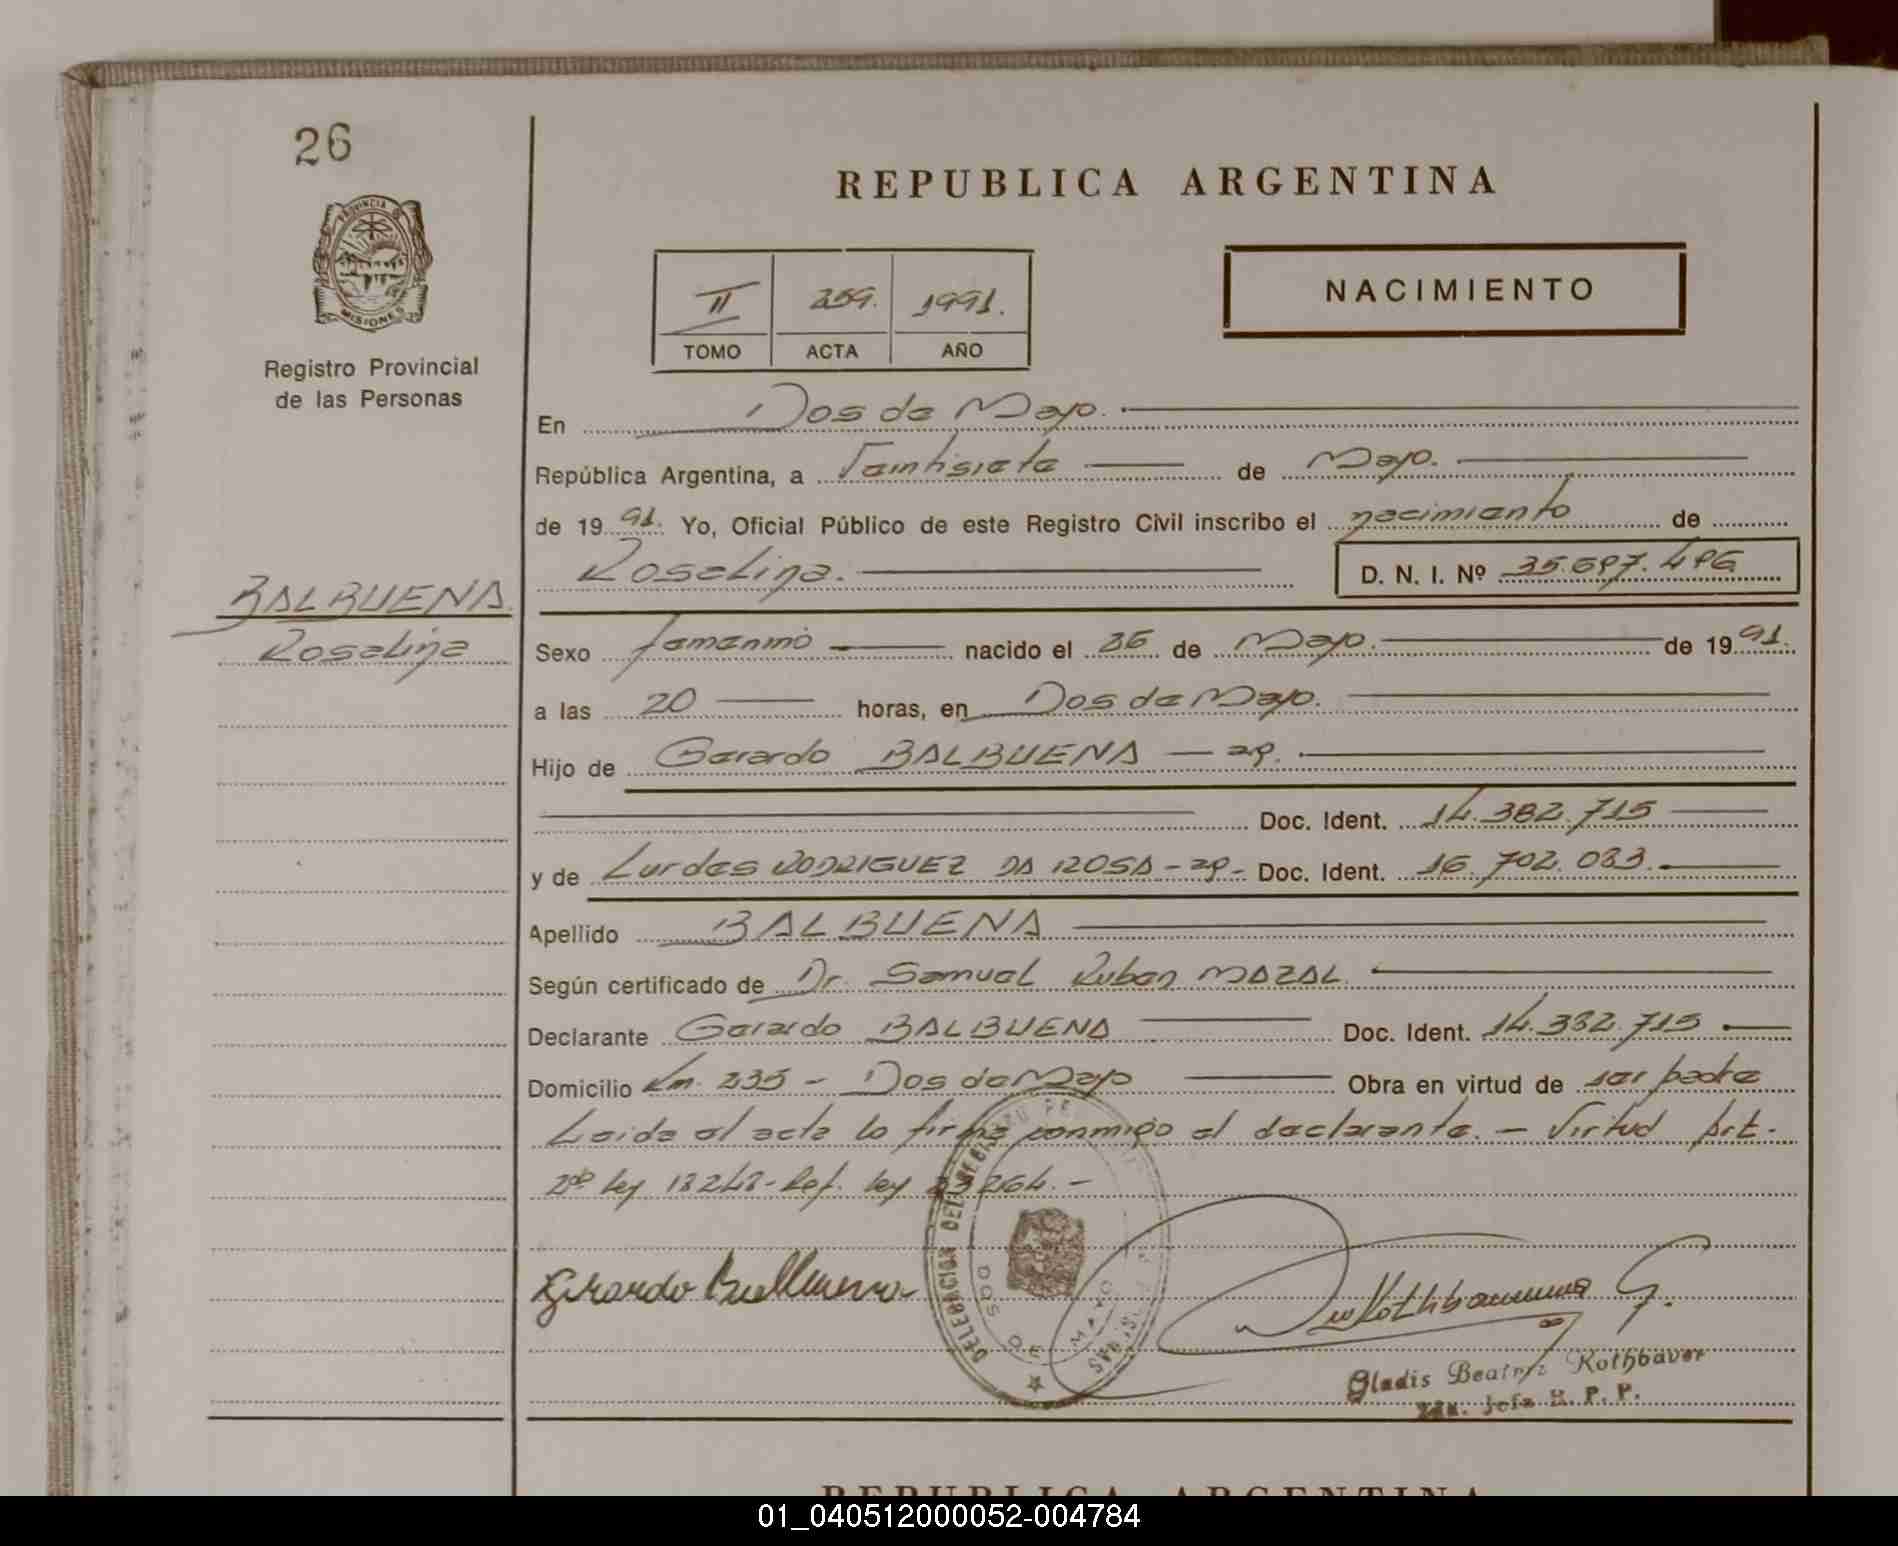 26
PROVINCIA DE
MISIONES
Registro Provincial
de las Personas
REPUBLICA ARGENTINA
II 259. 1991.
TOMO ACTA AÑO
NACIMIENTO
En Dos de Mayo.
República Argentina, a Veintisiete de Mayo.
de 19 91. Yo, Oficial Público de este Registro Civil inscribo el nacimiento de
Roselina. D. N. I. Nº
BALBUENA
Roselina
Sexo femenino nacido el 26 de Mayo. de 19 91.
a las 20 horas, en Dos de Mayo.
Hijo de Gerardo BALBUENA — ar.
Doc. Ident. 14.382.715
y de Lurdes RODRIGUEZ DA ROSA - ar - Doc. Ident. 16.702.083.
Apellido BALBUENA
Según certificado de Dr. Samuel Ruben MAZAL.
Declarante Gerardo BALBUENA Doc. Ident. 14.382.715
Domicilio Km. 235 - Dos de Mayo Obra en virtud de ser padre
Leida el acta la firma conmigo el declarante. - Virtud Art.
2do ley 18248 - Ref. ley 23264. -
DELEGACION DEL REGISTRO DE LAS PERSONAS
DOS DE MAYO
Gerardo Balbuena
Rothbauer G.
Gladis Beatriz Rothbauer
Jefa R. P. P.
REPUBLICA ARGENTINA
01_040512000052-004784